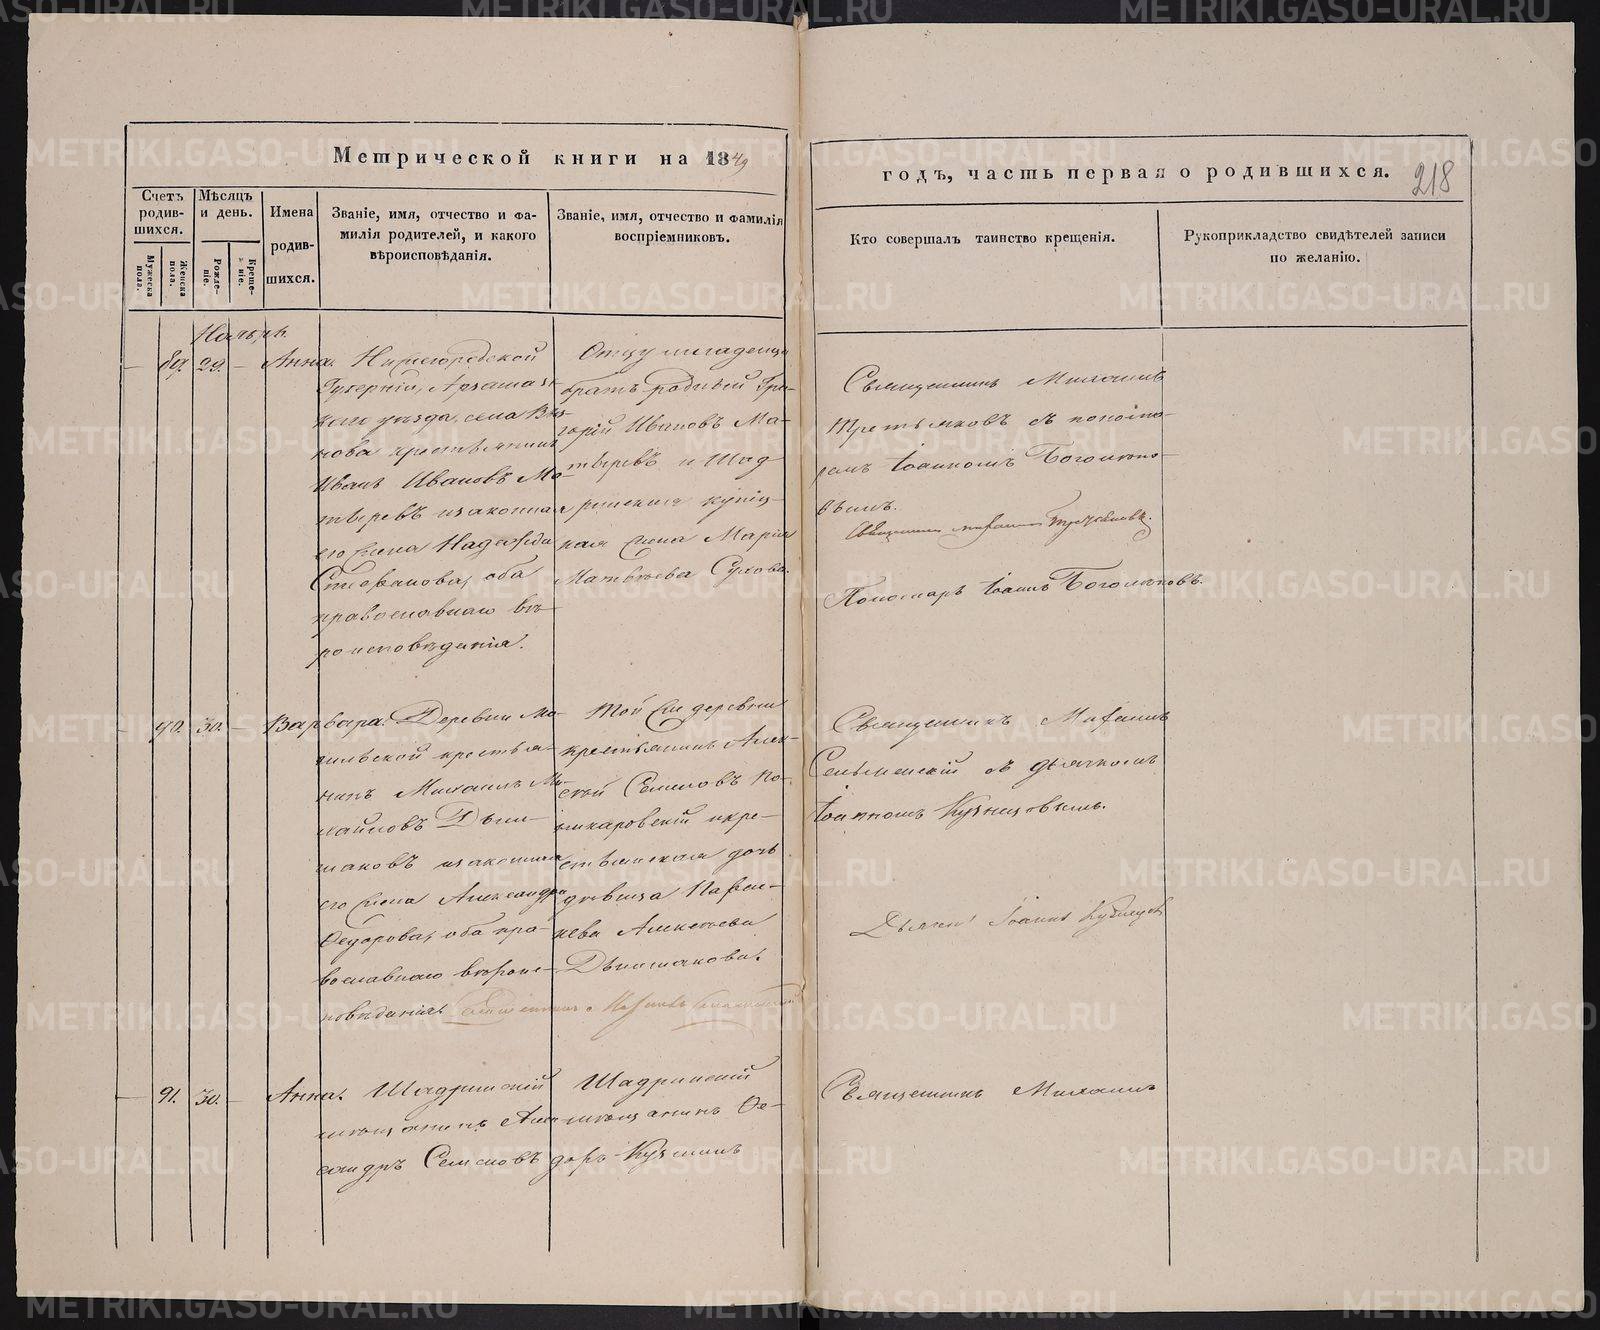 Метрической книги на 1849
годъ, часть первая о родившихся.
218
Счетъ родив-шихся.
Мужеска пола.
Женска пола.
Мѣсяцъ и день.
Рожде-ніе.
Креще-ніе.
Имена родив-шихся.
Званіе, имя, отчество и фа-
милія родителей, и какого
вѣроисповѣданія.
Званіе, имя, отчество и фамилія
воспріемниковъ.
Кто совершалъ таинство крещенія.
Рукоприкладство свидѣтелей записи
по желанію.
89. 29. Анна.
Нижегородской
Губерніи, Арзамас-
каго уѣзда, села
крестьянинъ
Иванъ Ивановъ
и законная
его жена Надежда
Стефанова, оба
православнаго вѣ-
роисповѣданія.
Отцу младенца
братъ родный Гри-
горій Ивановъ
и Шад-
ринская купец-
кая жена Марія
Матвѣева Сухова.
Священникъ Михаилъ
Третьяковъ съ понома-
ремъ Іоанномъ Богомоло-
вымъ.
Священникъ Михаилъ Третьяковъ.
Пономарь Іоаннъ Богомоловъ.
90. 30. Варвара.
Деревни
крестья-
нинъ Михаилъ Ми-
хайловъ
и законная
его жена Александра
Ѳедорова, оба пра-
вославнаго вѣроис-
повѣданія.
Той же деревни
крестьянинъ Алек-
сѣй Семеновъ По-
никаровскій и кре-
стьянская дочь
дѣвица
Алексѣева
Священникъ Михаилъ
съ дьячкомъ
Іоанномъ Кузнецовымъ.
Дьячекъ Іоаннъ Кузнецовъ
91. 30. Анна.
Шадринскій
мѣщанинъ Алек-
сандръ Семеновъ
Шадринскій
мѣщанинъ Ѳе-
доръ Кузминъ
Священникъ Михаилъ
METRIKI.GASO-URAL.RU